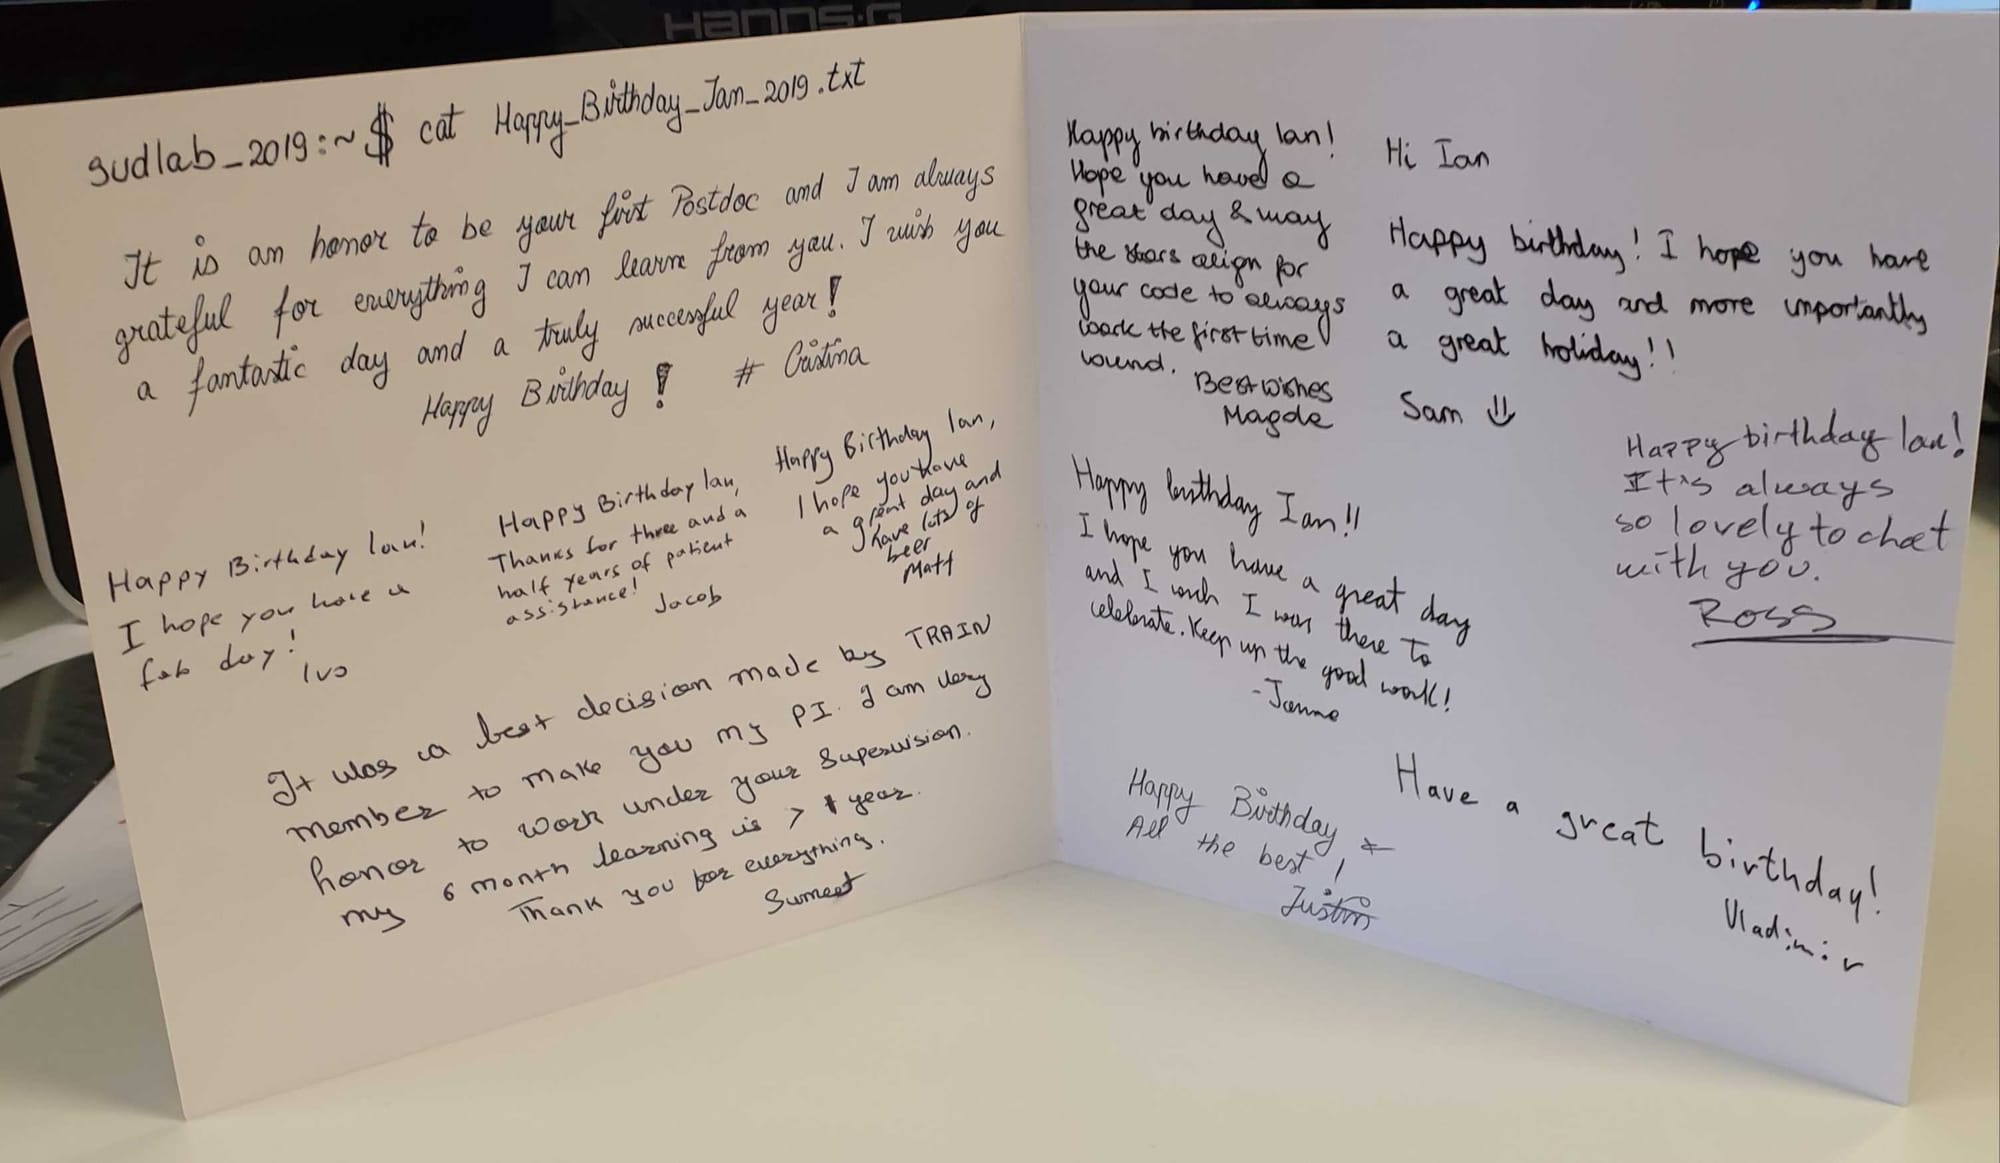 HANNS·G
sudlab_2019:~$ cat Happy_Birthday_Ian_2019.txt
It is an honor to be your first Postdoc and I am always
grateful for everything I can learn from you. I wish you
a fantastic day and a truly successful year!
Happy Birthday! # Cristina
Happy Birthday Ian!
I hope you have a
fab day!
Ivo
Happy Birthday Ian,
Thanks for three and a
half years of patient
assistance!
Jacob
Happy Birthday Ian,
I hope you have
a great day and
have lots of
beer
Matt
It was a best decision made by TRAIN
member to make you my PI. I am very
honor to work under your supervision.
my 6 month learning is > 1 year.
Thank you for everything.
Sumeet
Happy birthday Ian!
Hope you have a
great day & may
the stars align for
your code to always
work the first time
round.
Best wishes
Magda
Hi Ian
Happy birthday! I hope you have
a great day and more importantly
a great holiday!!
Sam
Happy birthday Ian!
It's always
so lovely to chat
with you.
Ross
Happy birthday Ian!!
I hope you have a great day
and I wish I was there to
celebrate. Keep up the good work!
Happy Birthday
All the best!
Justin
Have a great birthday!
Vladimir